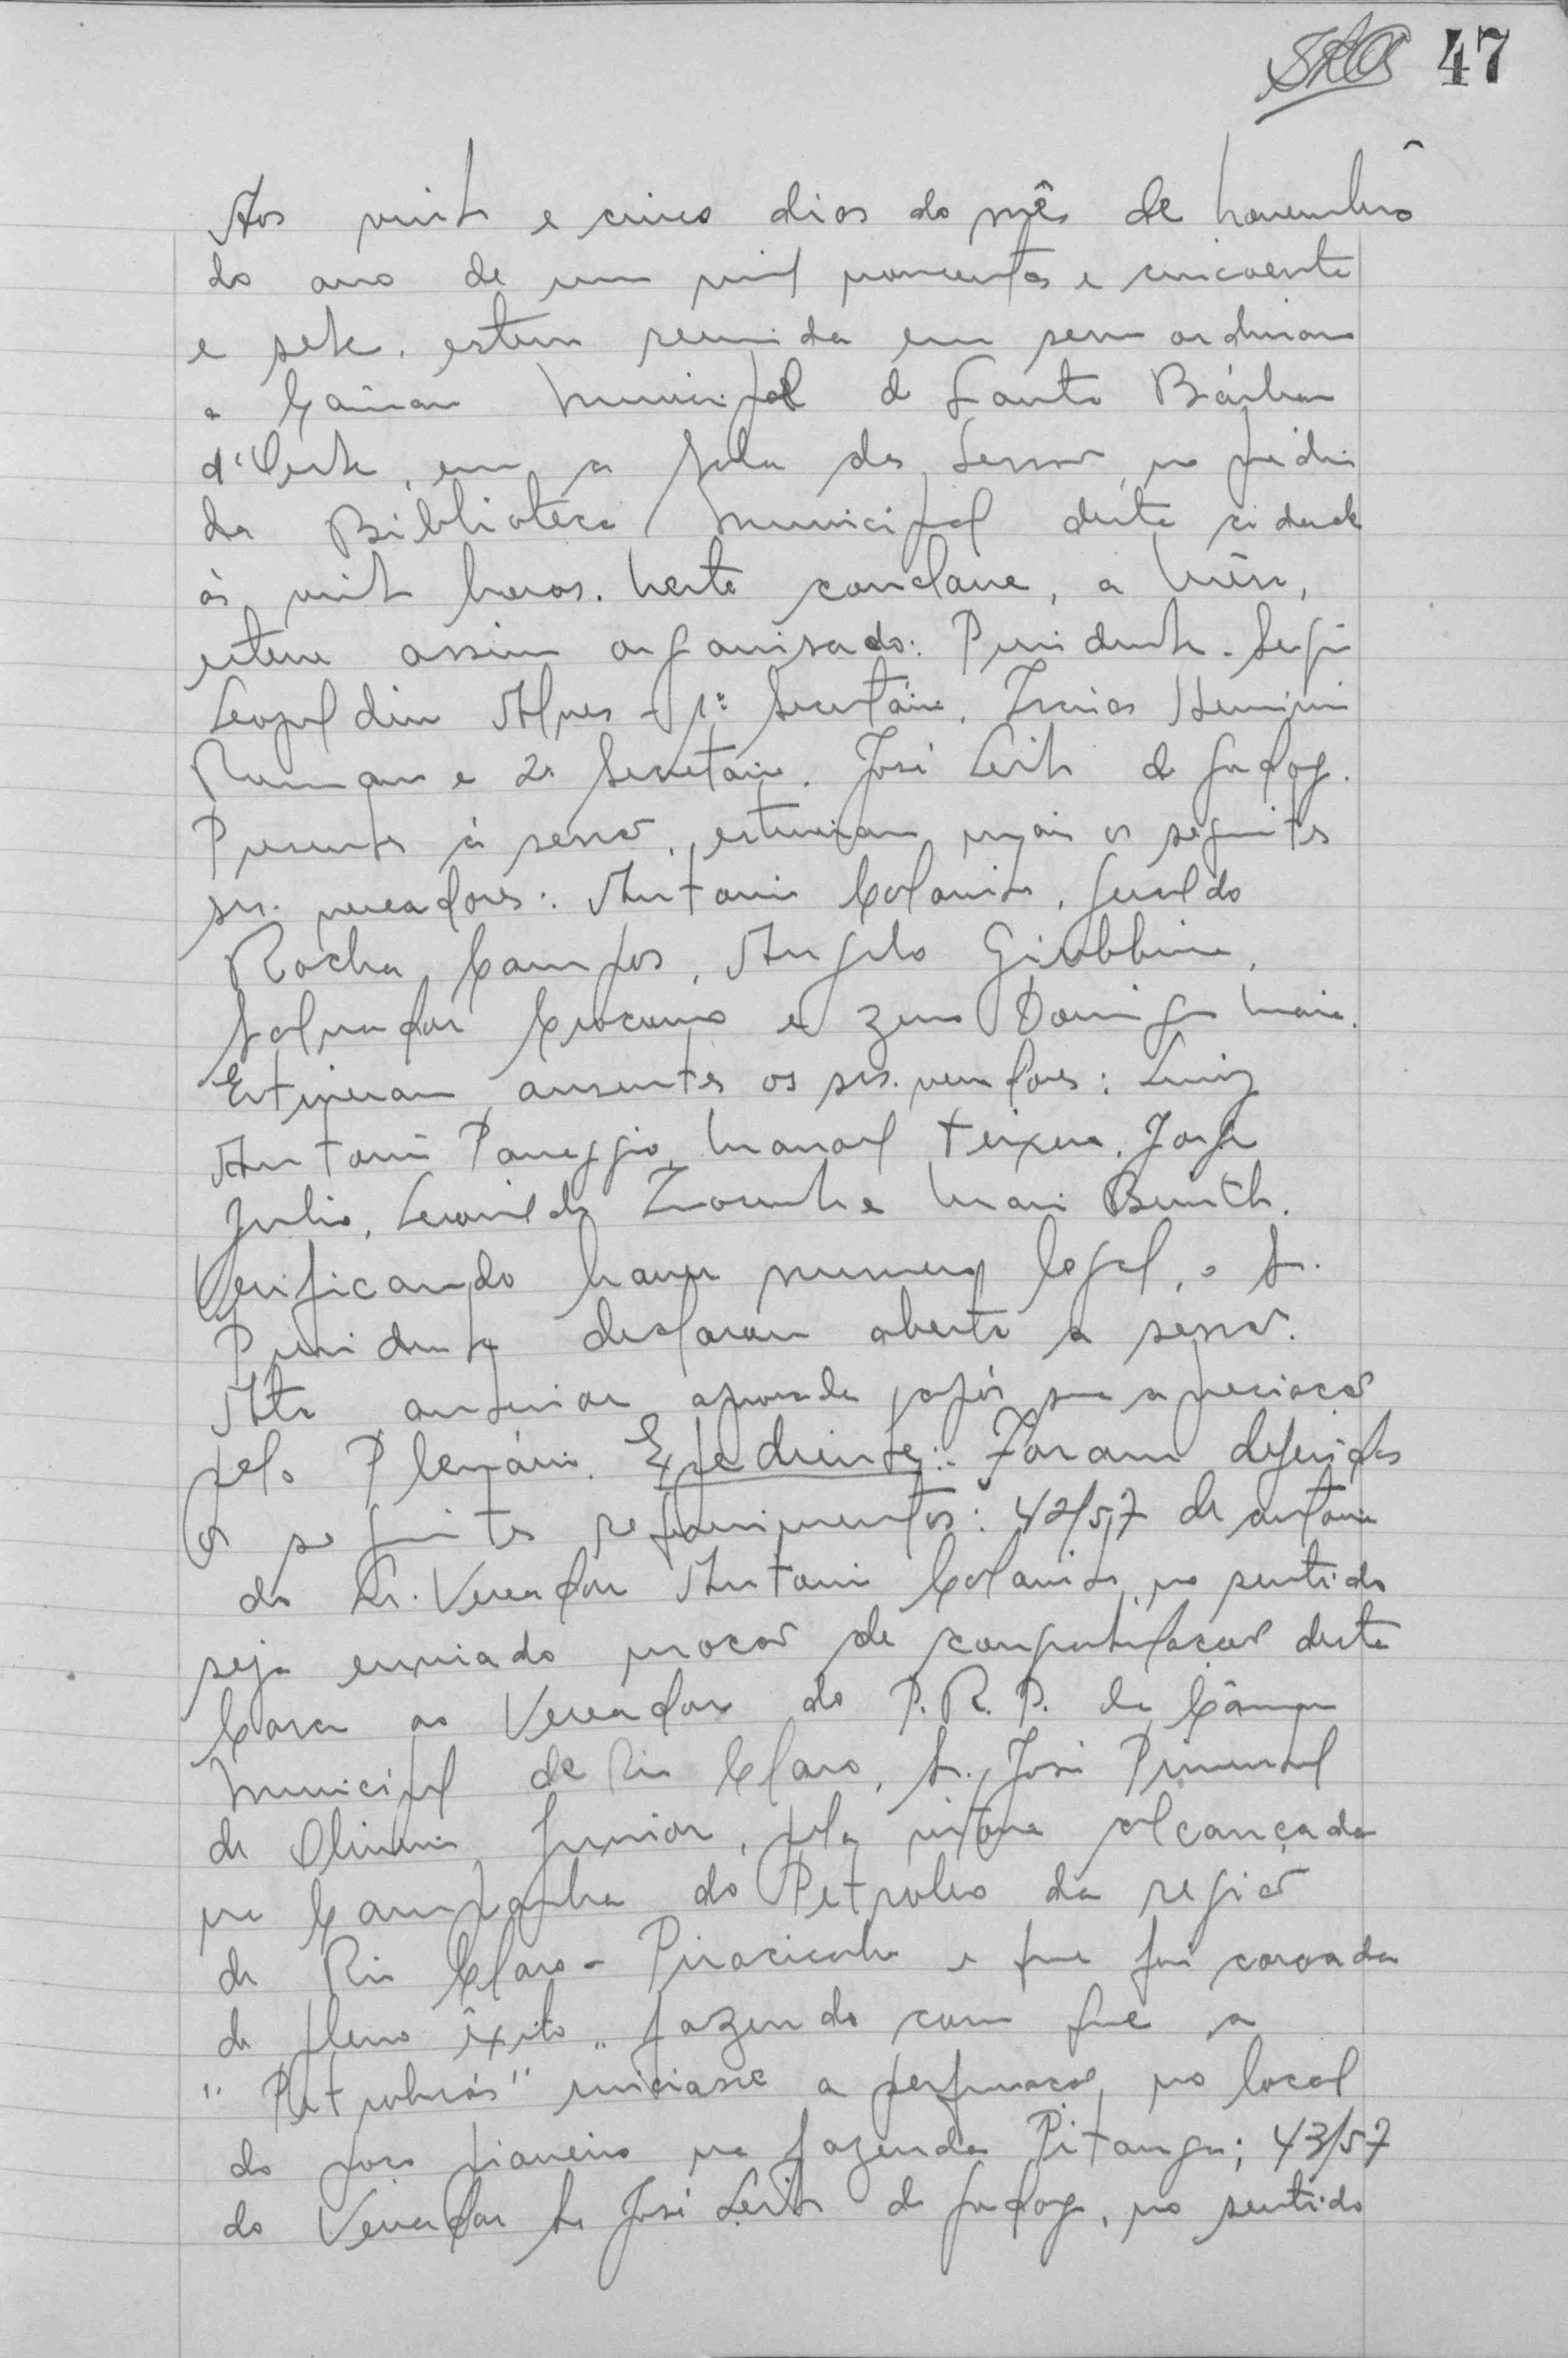 47
Aos vinte e cinco dias do mês de Novembro
do ano de um mil novecentos e cincoenta
e sete, esteve reunida em sessão ordinaria
a Câmara Municipal de Santa Bárbara
d'Oeste, em a sala das Sessões, no prédio
da Biblioteca Municipal desta cidade
às vinte horas. Neste conclave, a Mesa,
esteve assim organisada: Presidente - Sergio
Leopoldino Alves - 1º Secretário, Isaias Herminio
Romano e 2º Secretário, José Leite de Godoy.
Presentes à sessão, estiveram mais os seguintes
srs. vereadores: Antonio Colanito, Geraldo
Rocha Campos, Angelo Giubbina,
Salvador Crocomo e Zeno Domingos Maia.
Estiveram ausentes os srs. vereadores: Luiz
Antonio Panaggio, Manoel Teixeira, Jorge
Julio, Leonildo e Mario
Verificando haver numero legal, o Sr.
Presidente declarou aberta a sessão.
Ata anterior aprovada após sua apreciação
pelo Plenário. Expediente: Foram deferidos
os seguintes requerimentos: 42/57 de autoria
do Sr. Vereador Antonio Colanito, no sentido
seja enviado moção de congratulação desta
Casa ao Vereador do P.R.P. da Câmara
Municipal de Rio Claro, Sr. José Pimentel
de Oliveira Junior, pela vitoria alcançada
na Campanha do Petroleo da região
de Rio Claro - Piracicaba e que foi coroada
de pleno êxito, fazendo com que a
"Petrobrás" iniciasse a perfuração no local
do poço pioneiro na fazenda Pitanga; 43/57
do Vereador Sr José Leite de Godoy, no sentido